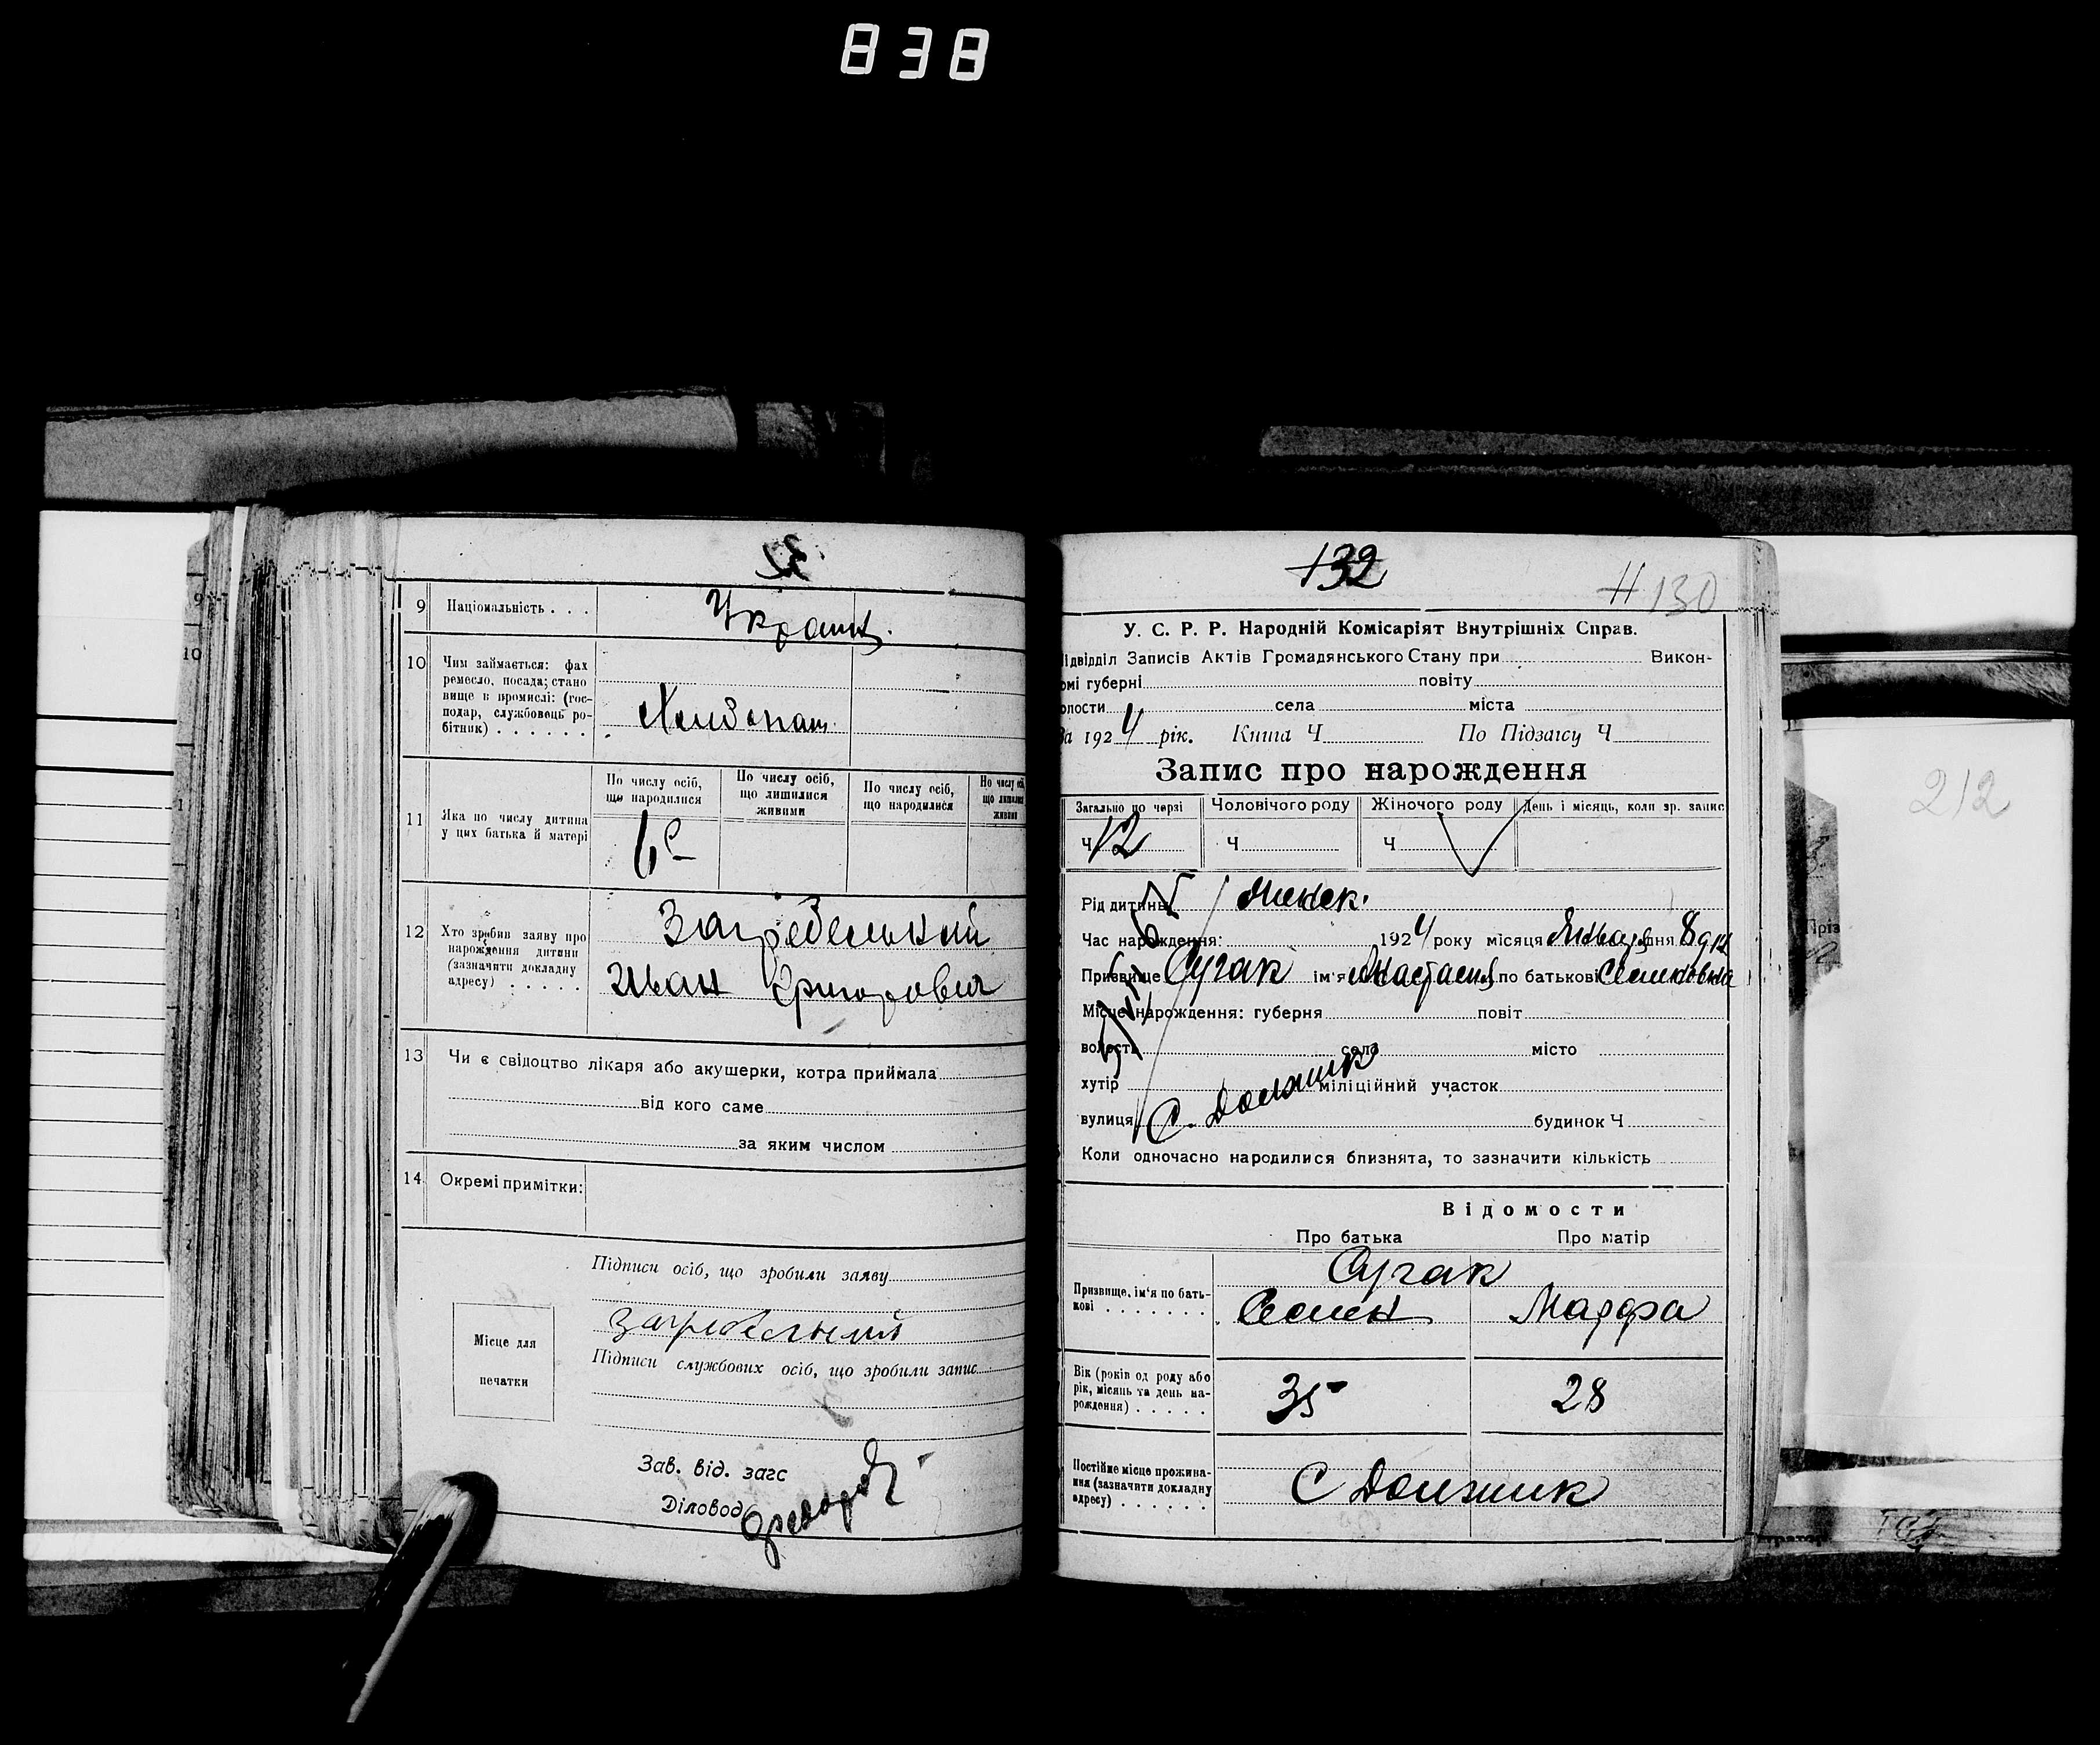 838
9 Національність . . . Украин.
10 Чим займається: фах
ремесло, посада; стано
вище в промислі: (гос-
подар, службовець ро-
бітник) . . . . . .
Хлибопаш.
По числу осіб, що народилися
По числу осіб, що лишилися живими
По числу осіб, що народилися
По числу осіб, що лишилися живими
11 Яка по числу дитина
у цих батька й матері
6е
12 Хто зробив заяву про
нарождення дитини
(зазначити докладну
адресу) . . . . .
Загребельний
Иван Григорович
13 Чи є свідоцтво лікаря або акушерки, котра приймала
від кого саме
за яким числом
14 Окремі примітки:
Підписи осіб, що зробили заяву
Загребельний
Місце для
печатки
Підписи службових осіб, що зробили запис
Зав. від. загс
Діловод
132
11 130
У. С. Р. Р. Народній Комісаріят Внутрішніх Справ.
ідвідділ Записів Актів Громадянського Стану при Викон-
омі губерні повіту
олости села міста
За 1924 рік. Книга Ч По Підзагсу Ч
Запис про нарождення
Загально по черзі Чоловічого роду Жіночого роду День і місяць, коли зр. запис
Ч 12 Ч Ч
Рід дитини женск.
Час нарождення: 1924 року місяця Января дня 8 дня
Призвище Сугак ім'я Анастасия по батькові Семеновна
Місце нарождення: губерня повіт
волость село місто
хутір міліційний участок
вулиця С. Должик будинок Ч
Коли одночасно народилися близнята, то зазначити кількість
Відомости
Про батька Про матір
Призвище, ім'я по бать-
кові . . . . . . . .
Сугак
Семен Марфа
Вік (років од роду або
рік, місяць та день на-
рождення) . . . . .
35 28
Постійне місце прожива-
ння (зазначити докладну
адресу) . . . . . .
С Должик
212